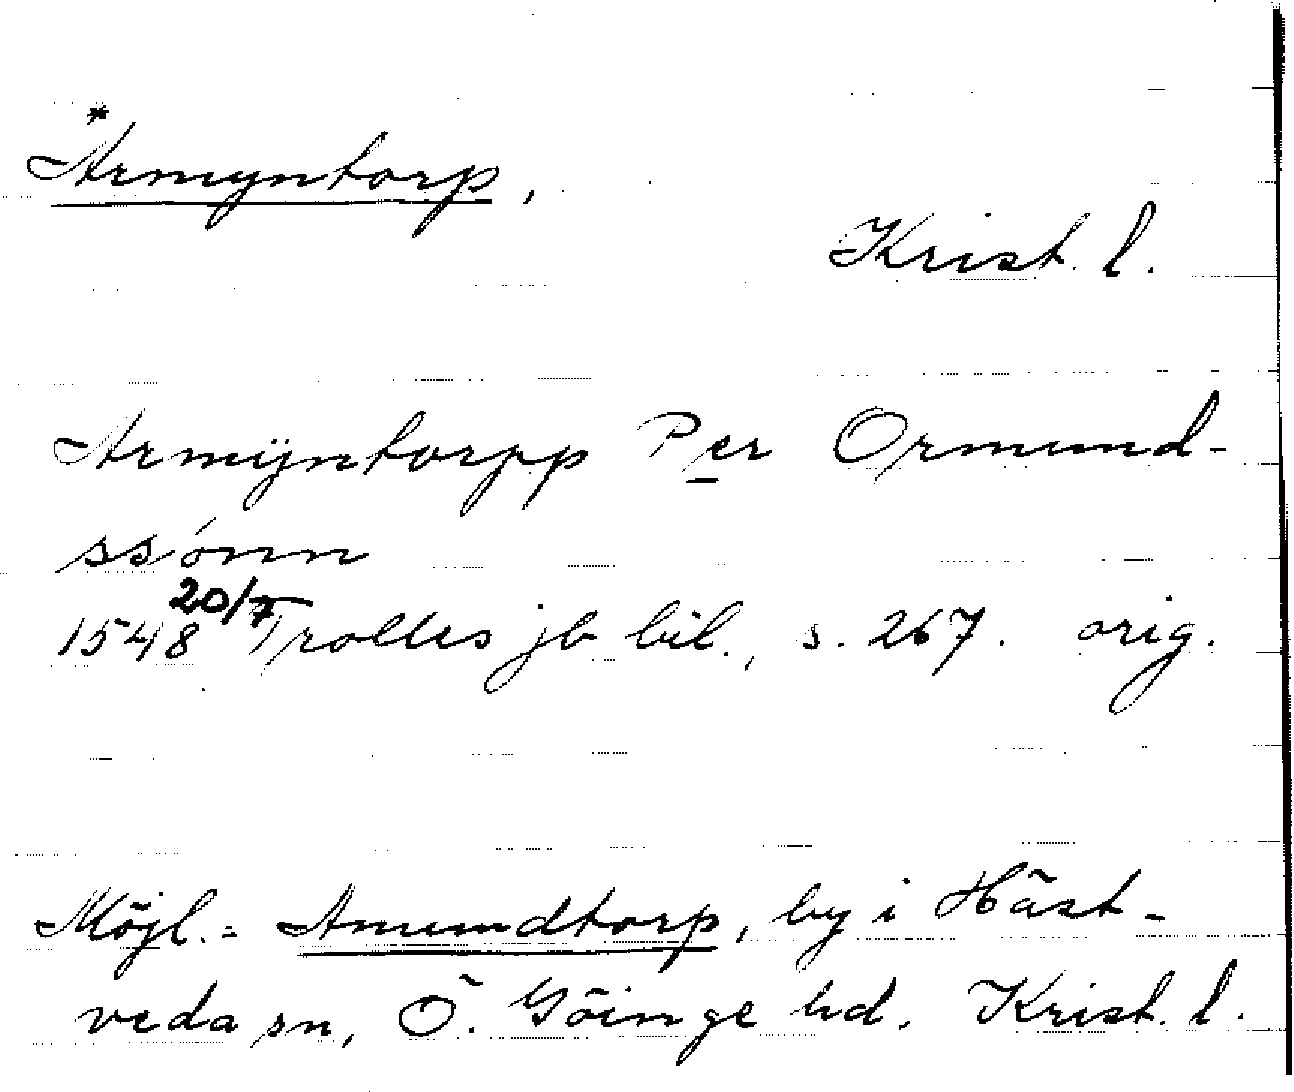 *Armyntorp,
Krist. l.
Armÿntorpp Per Ormund-
ssónn
1548 20/7 Trolles jb bil., s. 267. orig.
Möjl. = Amundtorp, by i Häst-
veda sn, Ö. Göinge hd. Krist. l.